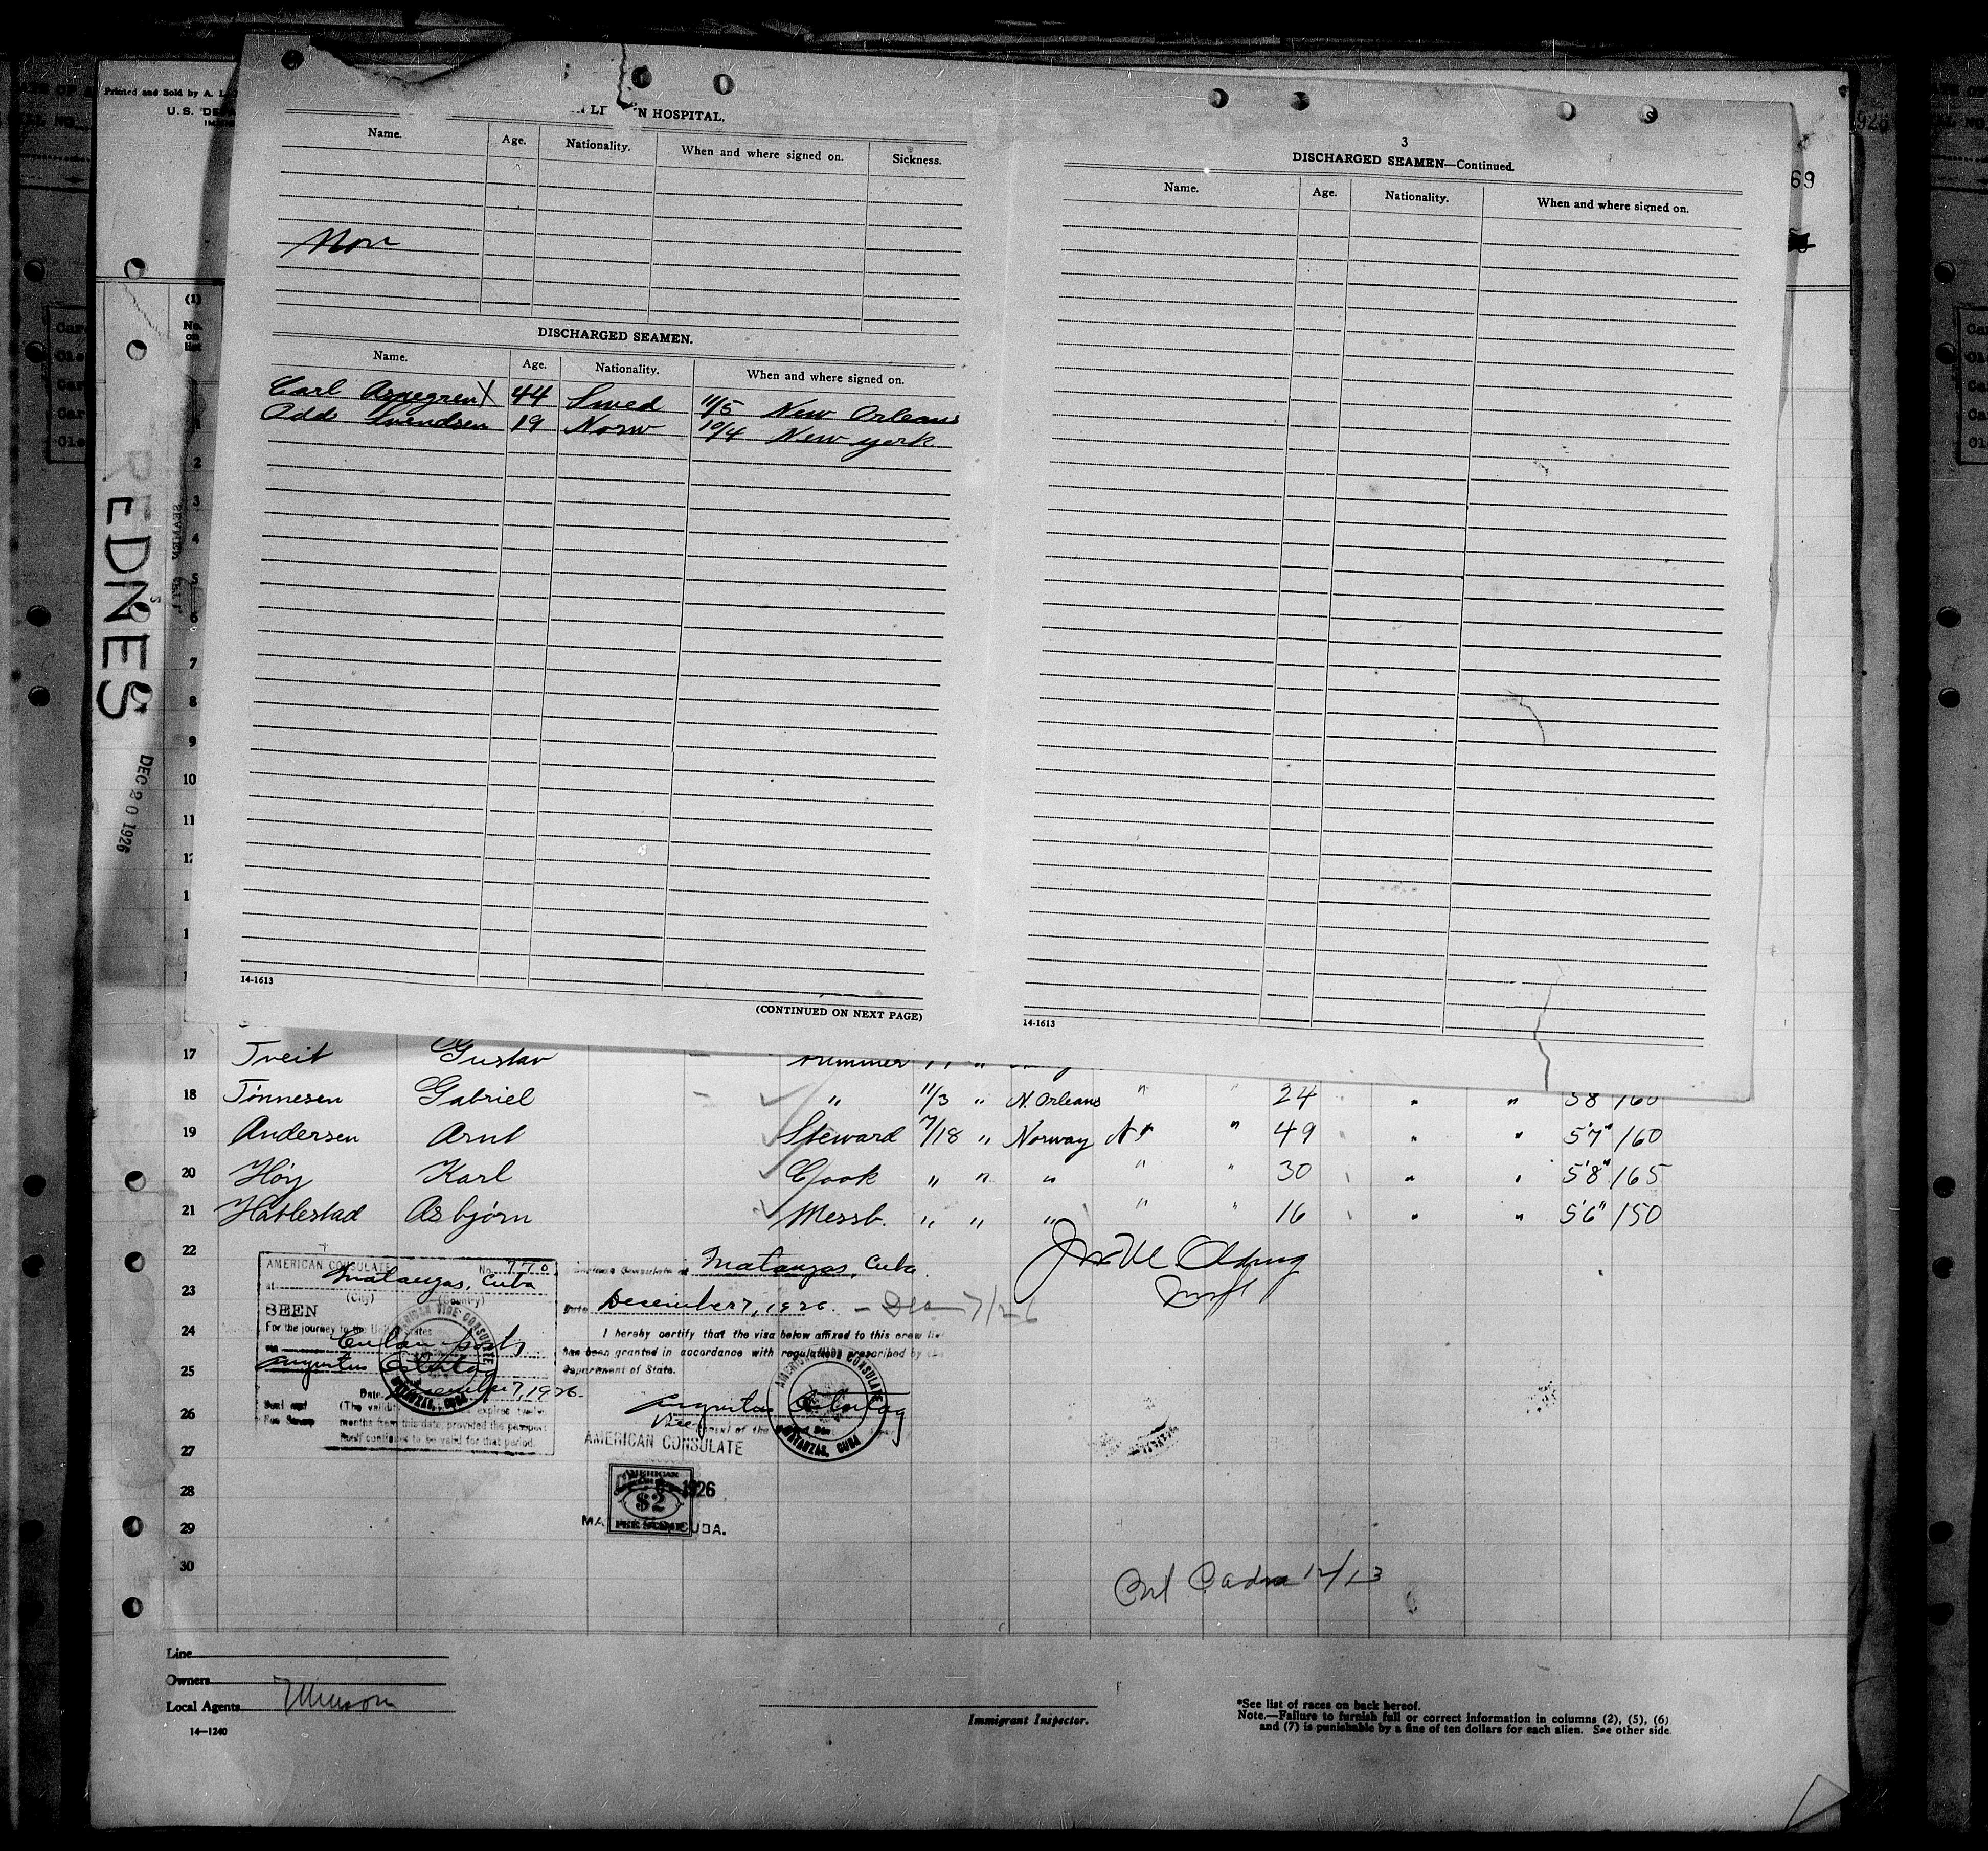 Printed and Sold by A. L
U. S. DEPA
HOSPITAL.
Name. Age. Nationality. When and where signed on. Sickness.
Non
DISCHARGED SEAMEN.
Name. Age. Nationality. When and where signed on.
Carl Arnegren X 44 Swed 11/5 New Orleans
Odd Svendsen 19 Norw 10/4 New york
14-1613
(CONTINUED ON NEXT PAGE)
3
DISCHARGED SEAMEN—Continued.
Name. Age. Nationality. When and where signed on.
14-1613
69
926
(1)
No.
on
list
REDNES
DEC 20 1926
2
3
4
5
6
7
8
9
10
11
17 Tveit Gustav
18 Tönnesen Gabriel " 11/3 " N. Orleans " " 24 " " 5'8 160
19 Andersen Arnt Steward 7/18 " Norway N " 49 " " 5'7" 160
20 Höy Karl Cook " " " " " 30 " " 5'8" 165
21 Hatlestad Asbjørn Messb. " " " " " 16 " " 5'6" 150
22
23
24
25
26
27
28
29
30
AMERICAN CONSULATE No. 770
at Matanzas, Cuba
(City) (Country)
SEEN
For the journey to the United States
Date December 7, 1926.
Seal and
Fee Stamp
(The validity expires twelve
months from this date, provided the passport
itself continues to be valid for that period.
AMERICAN VICE CONSULATE
MATANZAS, CUBA.
American Consulate at Matanzas, Cuba.
Date December 7, 1926.
I hereby certify that the visa below affixed to this crew list
has been granted in accordance with regulations prescribed by the
Department of State.
Vice
AMERICAN CONSULATE
AMERICAN
$2
FEE STAMP
1926
MA CUBA.
AMERICAN VICE CONSULATE
MATANZAS, CUBA
12/13
Line
Owners
Local Agents Munson
14—1240
Immigrant Inspector.
*See list of races on back hereof.
Note.—Failure to furnish full or correct information in columns (2), (5), (6)
and (7) is punishable by a fine of ten dollars for each alien. See other side.